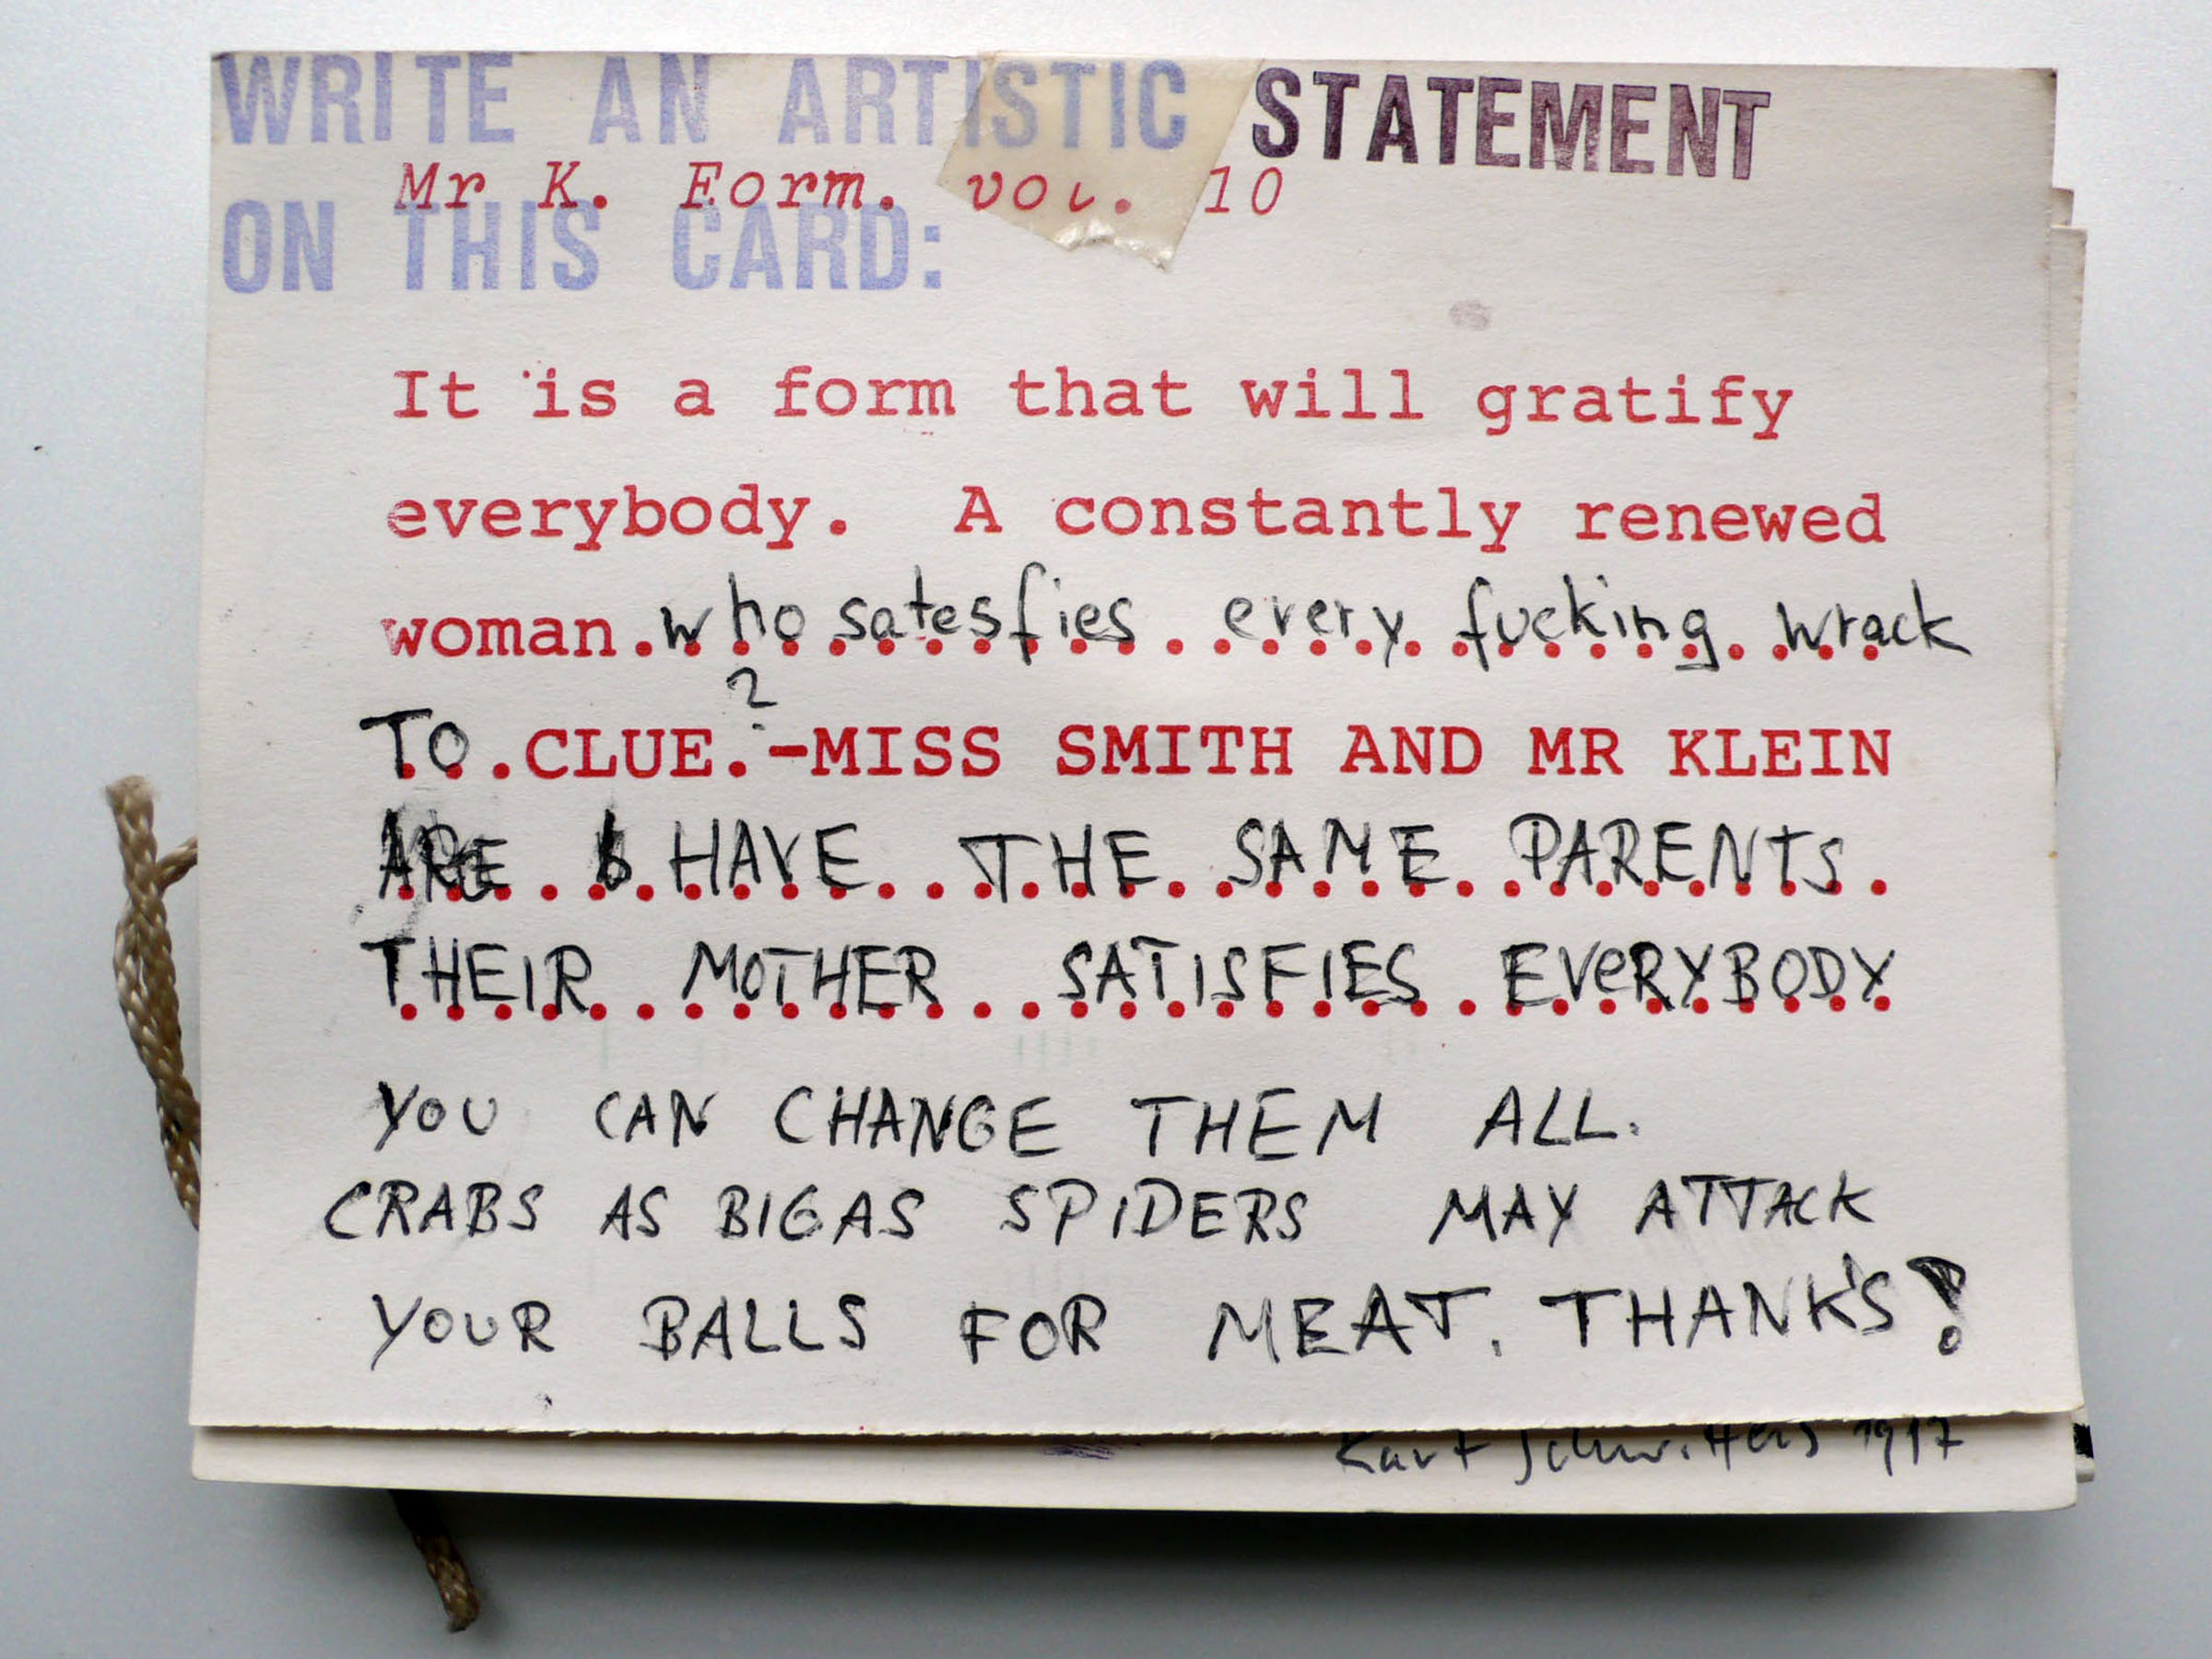 WRITE AN ARTISTIC STATEMENT
Mr K. Form. vol. 10
ON THIS CARD:
It is a form that will gratify
everybody. A constantly renewed
woman. who satesfies every fucking wrack
?
TO . CLUE. -MISS SMITH AND MR KLEIN
ARE HAVE THE SAME PARENTS.
THEIR MOTHER SATISFIES EVERYBODY
YOU CAN CHANGE THEM ALL.
CRABS AS BIG AS SPIDERS MAY ATTACK
YOUR BALLS FOR MEAT. THANK'S!
Kurt Schwitters 1917